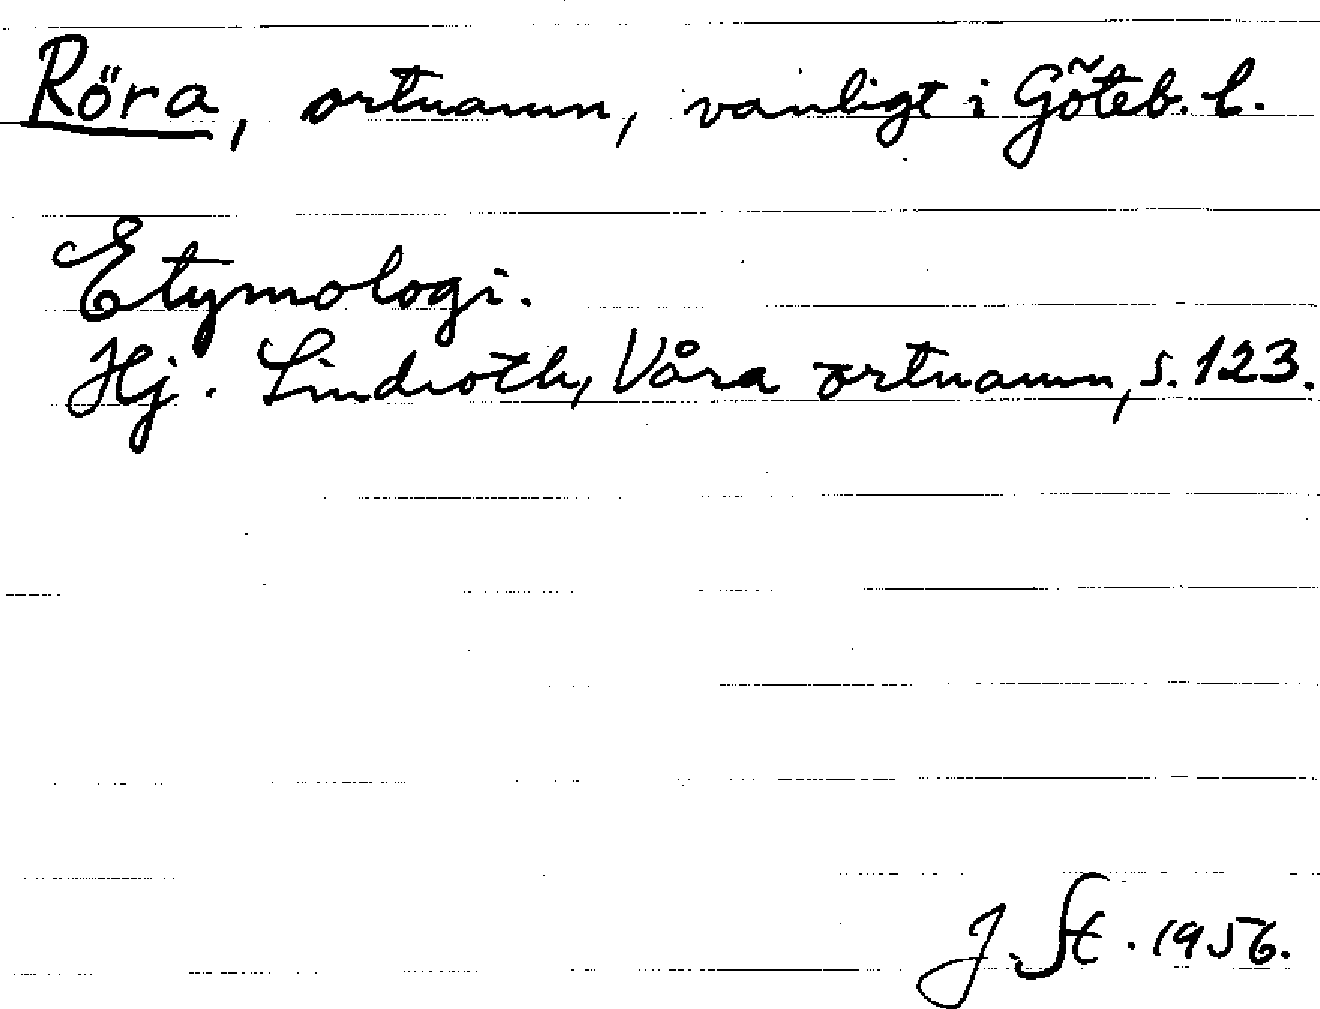 Röra, ortnamn, vanligt i Göteb. l.
Etymologi.
Hj. Lindroth, Våra ortnamn, s. 123.
J. St. 1956.